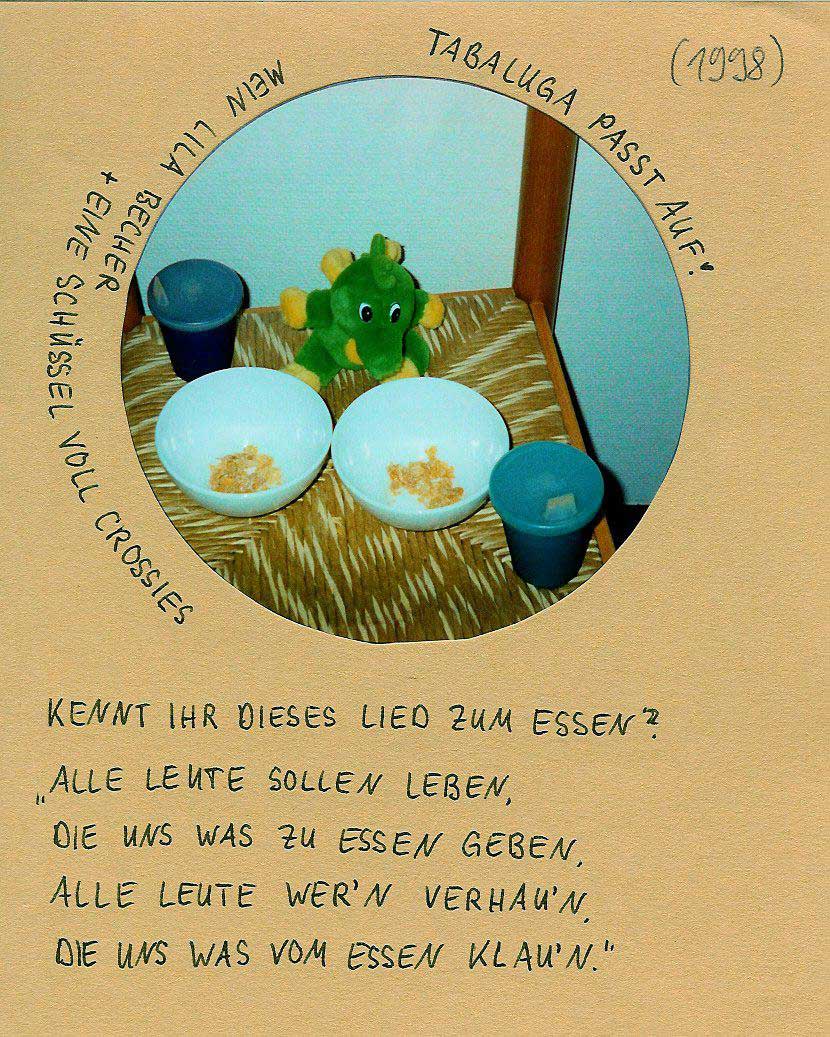 (1998)
TABALUGA PASST AUF!
MEIN LILA BECHER
+ EINE SCHÜSSEL VOLL CROSSIES
KENNT IHR DIESES LIED ZUM ESSEN?
„ALLE LEUTE SOLLEN LEBEN,
DIE UNS WAS ZU ESSEN GEBEN,
ALLE LEUTE WER'N VERHAU'N,
DIE UNS WAS VOM ESSEN KLAU'N."